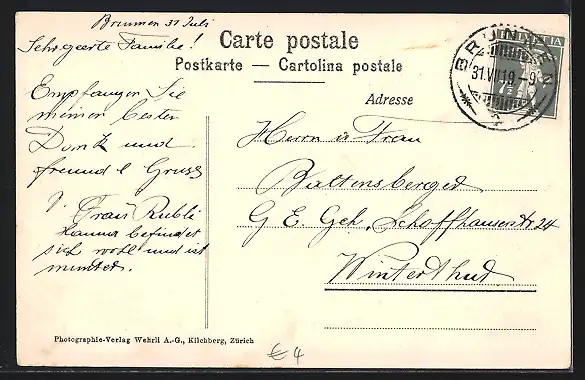 Brunnen 31 Juli
Sehr geerte Familie!
Carte postale
Postkarte — Cartolina postale
Adresse
BRUNNEN
31.VII.19 - 9
HELVETIA
7½
Empfangen Sie
meinen besten
Dank und
freundl Gruss
v. Frau Rubli
Hanna befindet
sich wohl und ist
munter.
Herrn u Frau
Baltensberger
G E. Geh, Schaffhauserstr 24
Winterthur
Photographie-Verlag Wehrli A.-G., Kilchberg, Zürich
€ 4